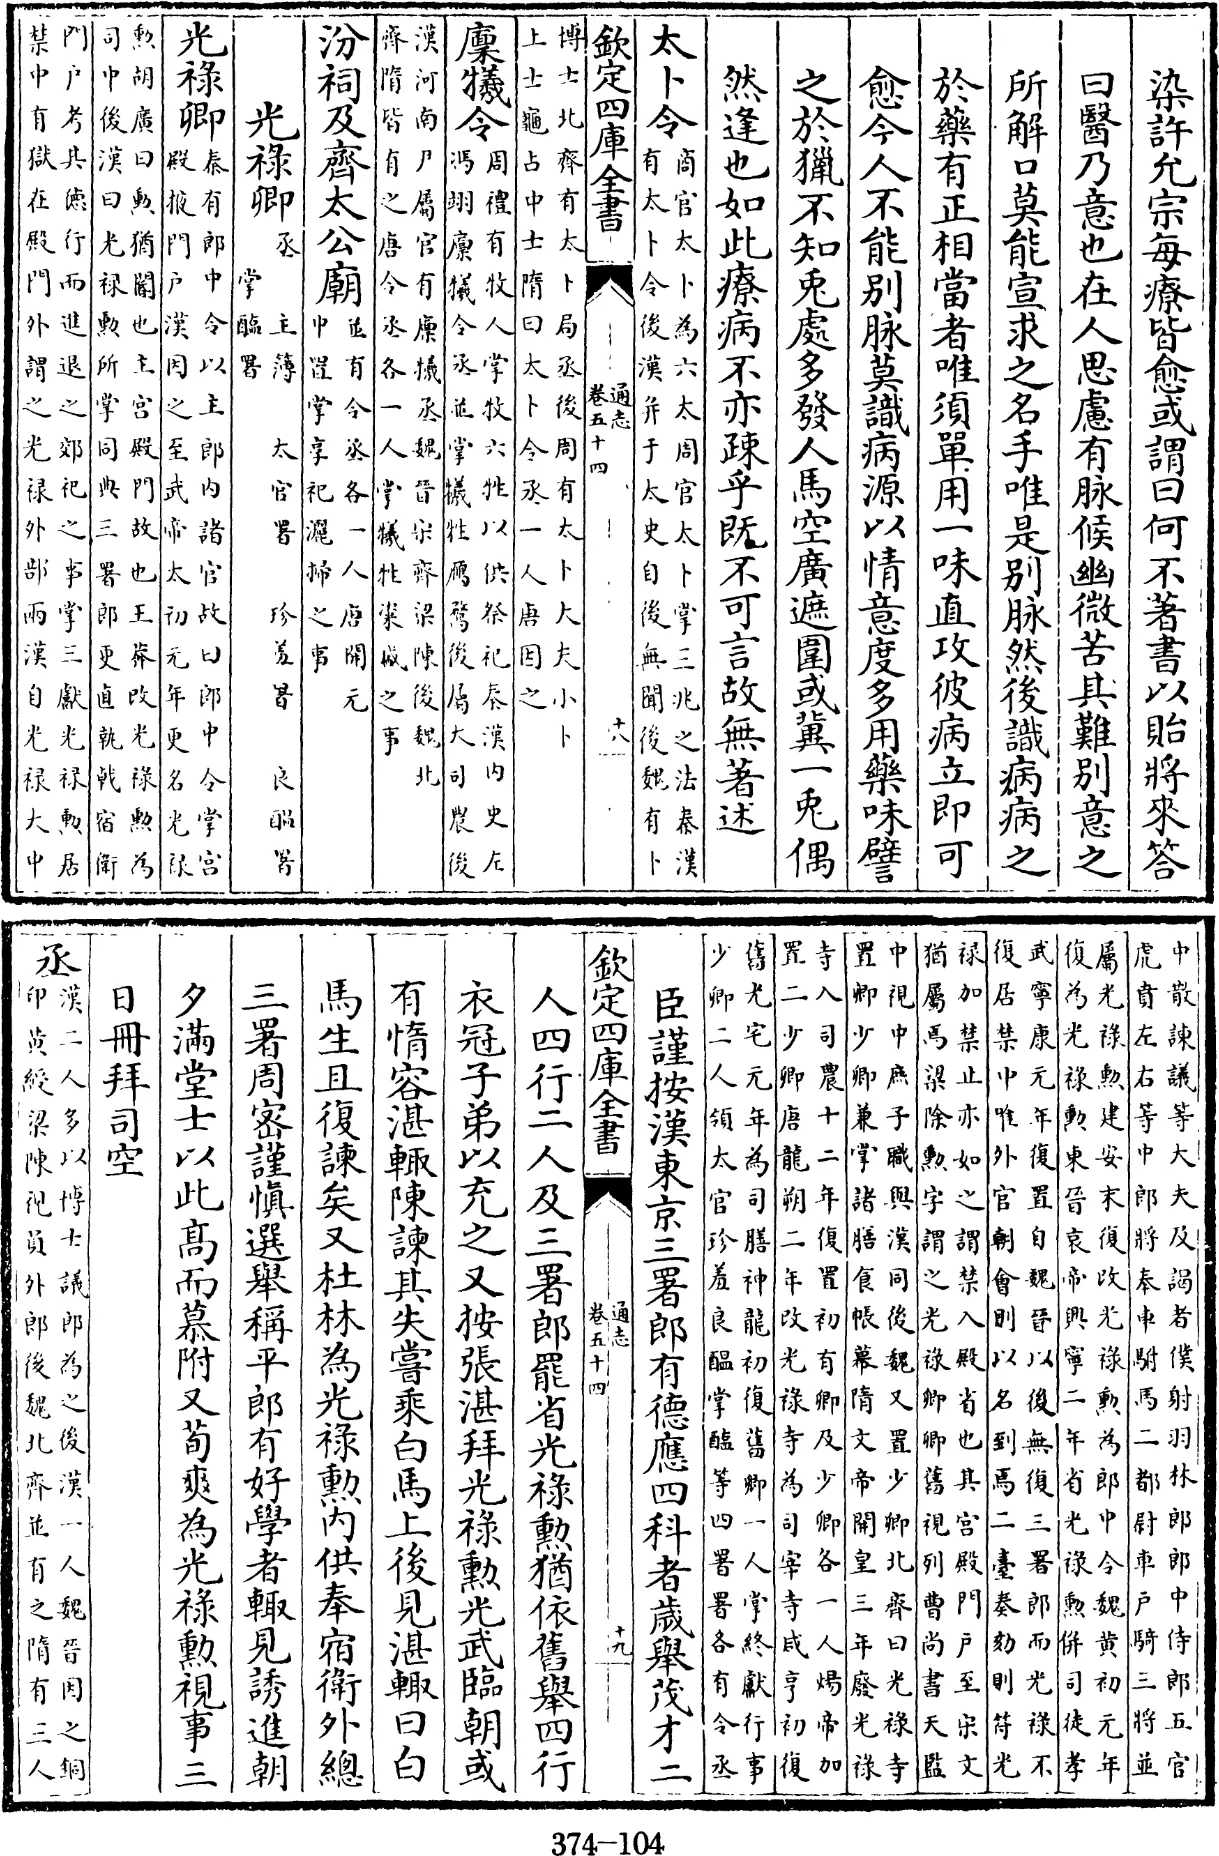 染許允宗每療皆愈或謂曰何不著書以貽將來答
曰醫乃意也在人思慮有脉候幽微苦其難别意之
所解口莫能宣求之名手唯是别脉然後識病病之
於藥有正相當者唯須單用一味直攻彼病立即可
愈今人不能别脉莫識病源以情意度多用藥味譬
之於獵不知兎處多發人馬空廣遮圍或冀一兎偶
然逢也如此療病不亦疎乎既不可言故無著述
太卜令商官太卜為六太周官太卜掌三兆之法秦漢
有太卜令後漢并于太史自後無聞後魏有卜
欽定四庫全書 通志 卷五十四 十八
博士北齊有太卜局丞後周有太卜大夫小卜
上士龜占中士隋曰太卜令丞一人唐因之
廩犧令周禮有牧人掌牧六牲以供祭祀秦漢内史左
馮翊廩犧令丞並掌犧牲鴈鶩後屬大司農後
漢河南尹屬官有廩犧丞魏晉宋齊梁陳後魏北
齊隋皆有之唐令丞各一人掌犧牲粢盛之事
汾祠及齊太公廟並有令丞各一人唐開元
中置掌享祀灑掃之事
光祿卿 丞 主簿 太官署 珍羞署 良醞署
掌醢署
光祿卿秦有郎中令以主郎内諸官故曰郎中令掌宫
殿掖門戸漢因之至武帝太初元年更名光祿
勲胡廣曰勲猶閽也主宫殿門故也王莽改光祿勲為
司中後漢曰光祿勲所掌同典三署郎更直執戟宿衛
門戸考其德行而進退之郊祀之事掌三獻光祿勲居
禁中有獄在殿門外謂之光祿外部兩漢自光祿大中
中散諫議等大夫及謁者僕射羽林郎郎中侍郎五官
虎賁左右等中郎將奉車駙馬二都尉車戸騎三將並
屬光祿勲建安末復改光祿勲為郎中令魏黄初元年
復為光祿勲東晉哀帝興寧二年省光祿勲併司徒孝
武寧康元年復置自魏晉以後無復三署郎而光祿不
復居禁中唯外官朝會則以名到焉二臺奏劾則符光
祿加禁止亦如之謂禁入殿省也其宫殿門戸至宋文
猶屬焉梁除勲字謂之光祿卿卿舊視列曹尚書天監
中視中庶子職與漢同後魏又置少卿北齊曰光祿寺
置卿少卿兼掌諸膳食帳幕隋文帝開皇三年廢光祿
寺入司農十二年復置初有卿及少卿各一人煬帝加
置二少卿唐龍朔二年改光祿寺為司宰寺咸亨初復
舊光宅元年為司膳神龍初復舊卿一人掌終獻行事
少卿二人領太官珍羞良醞掌醢等四署署各有令丞
臣謹按漢東京三署郎有德應四科者歲舉茂才二
欽定四庫全書 通志 卷五十四 十九
人四行二人及三署郎罷省光祿勲猶依舊舉四行
衣冠子弟以充之又按張湛拜光祿勲光武臨朝或
有惰容湛輙陳諫其失嘗乘白馬上後見湛輙曰白
馬生且復諫矣又杜林為光祿勲内供奉宿衛外總
三署周密謹慎選舉稱平郎有好學者輙見誘進朝
夕滿堂士以此髙而慕附又荀爽為光祿勲視事三
日冊拜司空
丞漢二人多以博士議郎為之後漢一人魏晉因之銅
印黄綬梁陳視員外郎後魏北齊並有之隋有三人
374-104